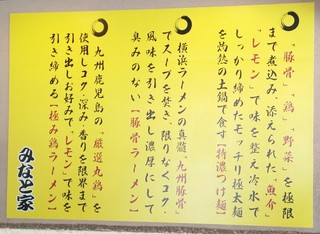 「豚骨」「鶏」「野菜」を極限
まで煮込み、添えられた、「魚介」
「レモン」で味を整え冷水で
しっかり締めたモッチリ極太麺
を灼熱の土鍋で食す【特濃つけ麺】
横浜ラーメンの真髄、「九州豚骨」
でスープを焚き、限りなくコク・
風味を引き出し濃厚にして
臭みのない【豚骨ラーメン】
九州鹿児島の「厳選丸鶏」を
使用しコク・深み・香りを限界まで
引き出しお好みで、「レモン」で味を
引き締める【極み鶏ラーメン】
みなと家